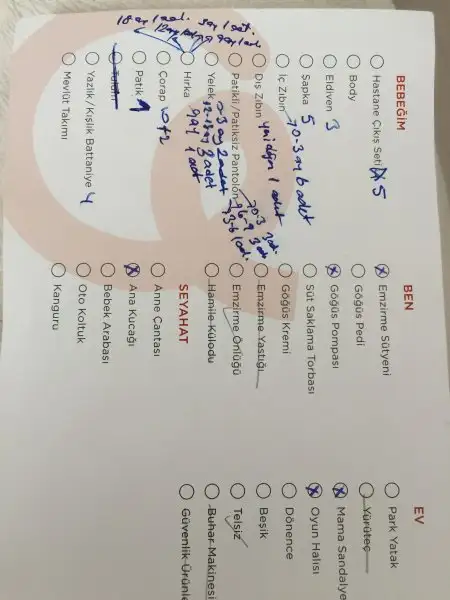 BEBEĞİM
Hastane Çıkış Seti 5
Body
Eldiven 3
Şapka 5
İç Zıbın 0-3 ay 6 adet
Dış Zıbın yeni doğan 1 adet
Patikli/Patiksiz Pantolon 0-3 3 ad.
6-9 3 ad.
3-6 1 ad.
Yelek 0-3 ay 2 adet
12-18 ay 2 adet
Hırka 9 ay 1 adet
18 ay 1 ad.
Çorap
Patik 1
Yazlık/Kışlık Battaniye 4
Mevlüt Takımı
BEN
Emzirme Sütyeni
Göğüs Pedi
Göğüs Pompası
Süt Saklama Torbası
Göğüs Kremi
Emzirme Yastığı
Emzirme Önlüğü
Hamile Külodu
SEYAHAT
Anne Çantası
Ana Kucağı
Bebek Arabası
Oto Koltuk
Kanguru
EV
Park Yatak
Yürüteç
Mama Sandalye
Oyun Halısı
Dönence
Beşik
Telsiz
Buhar Makinesi
Güvenlik Ürünle